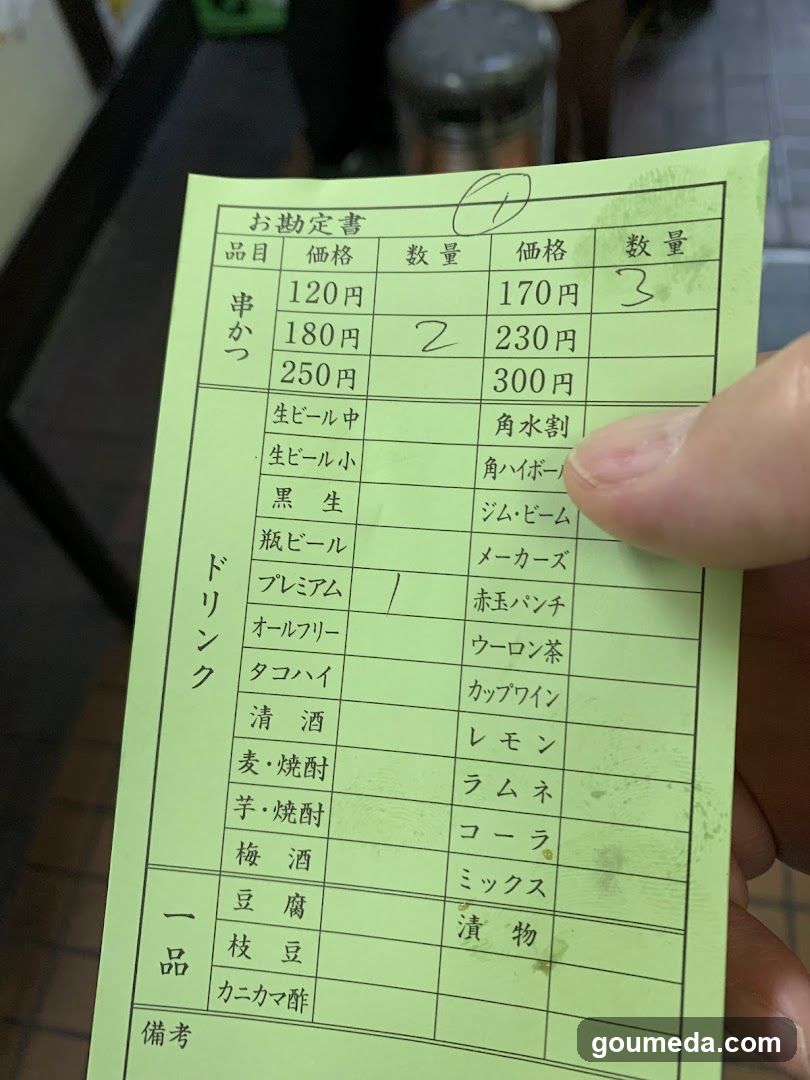 1
お勘定書
品目 価格 数量 価格 数量
串かつ
120円 170円 3
180円 2 230円
250円 300円
ドリンク
生ビール中 角水割
生ビール小 角ハイボール
黒生 ジム・ビーム
瓶ビール メーカーズ
プレミアム 1 赤玉パンチ
オールフリー ウーロン茶
タコハイ カップワイン
清酒 レモン
麦・焼酎 ラムネ
芋・焼酎 コーラ
梅酒 ミックス
一品
豆腐 漬物
枝豆
カニカマ酢
備考
goumeda.com